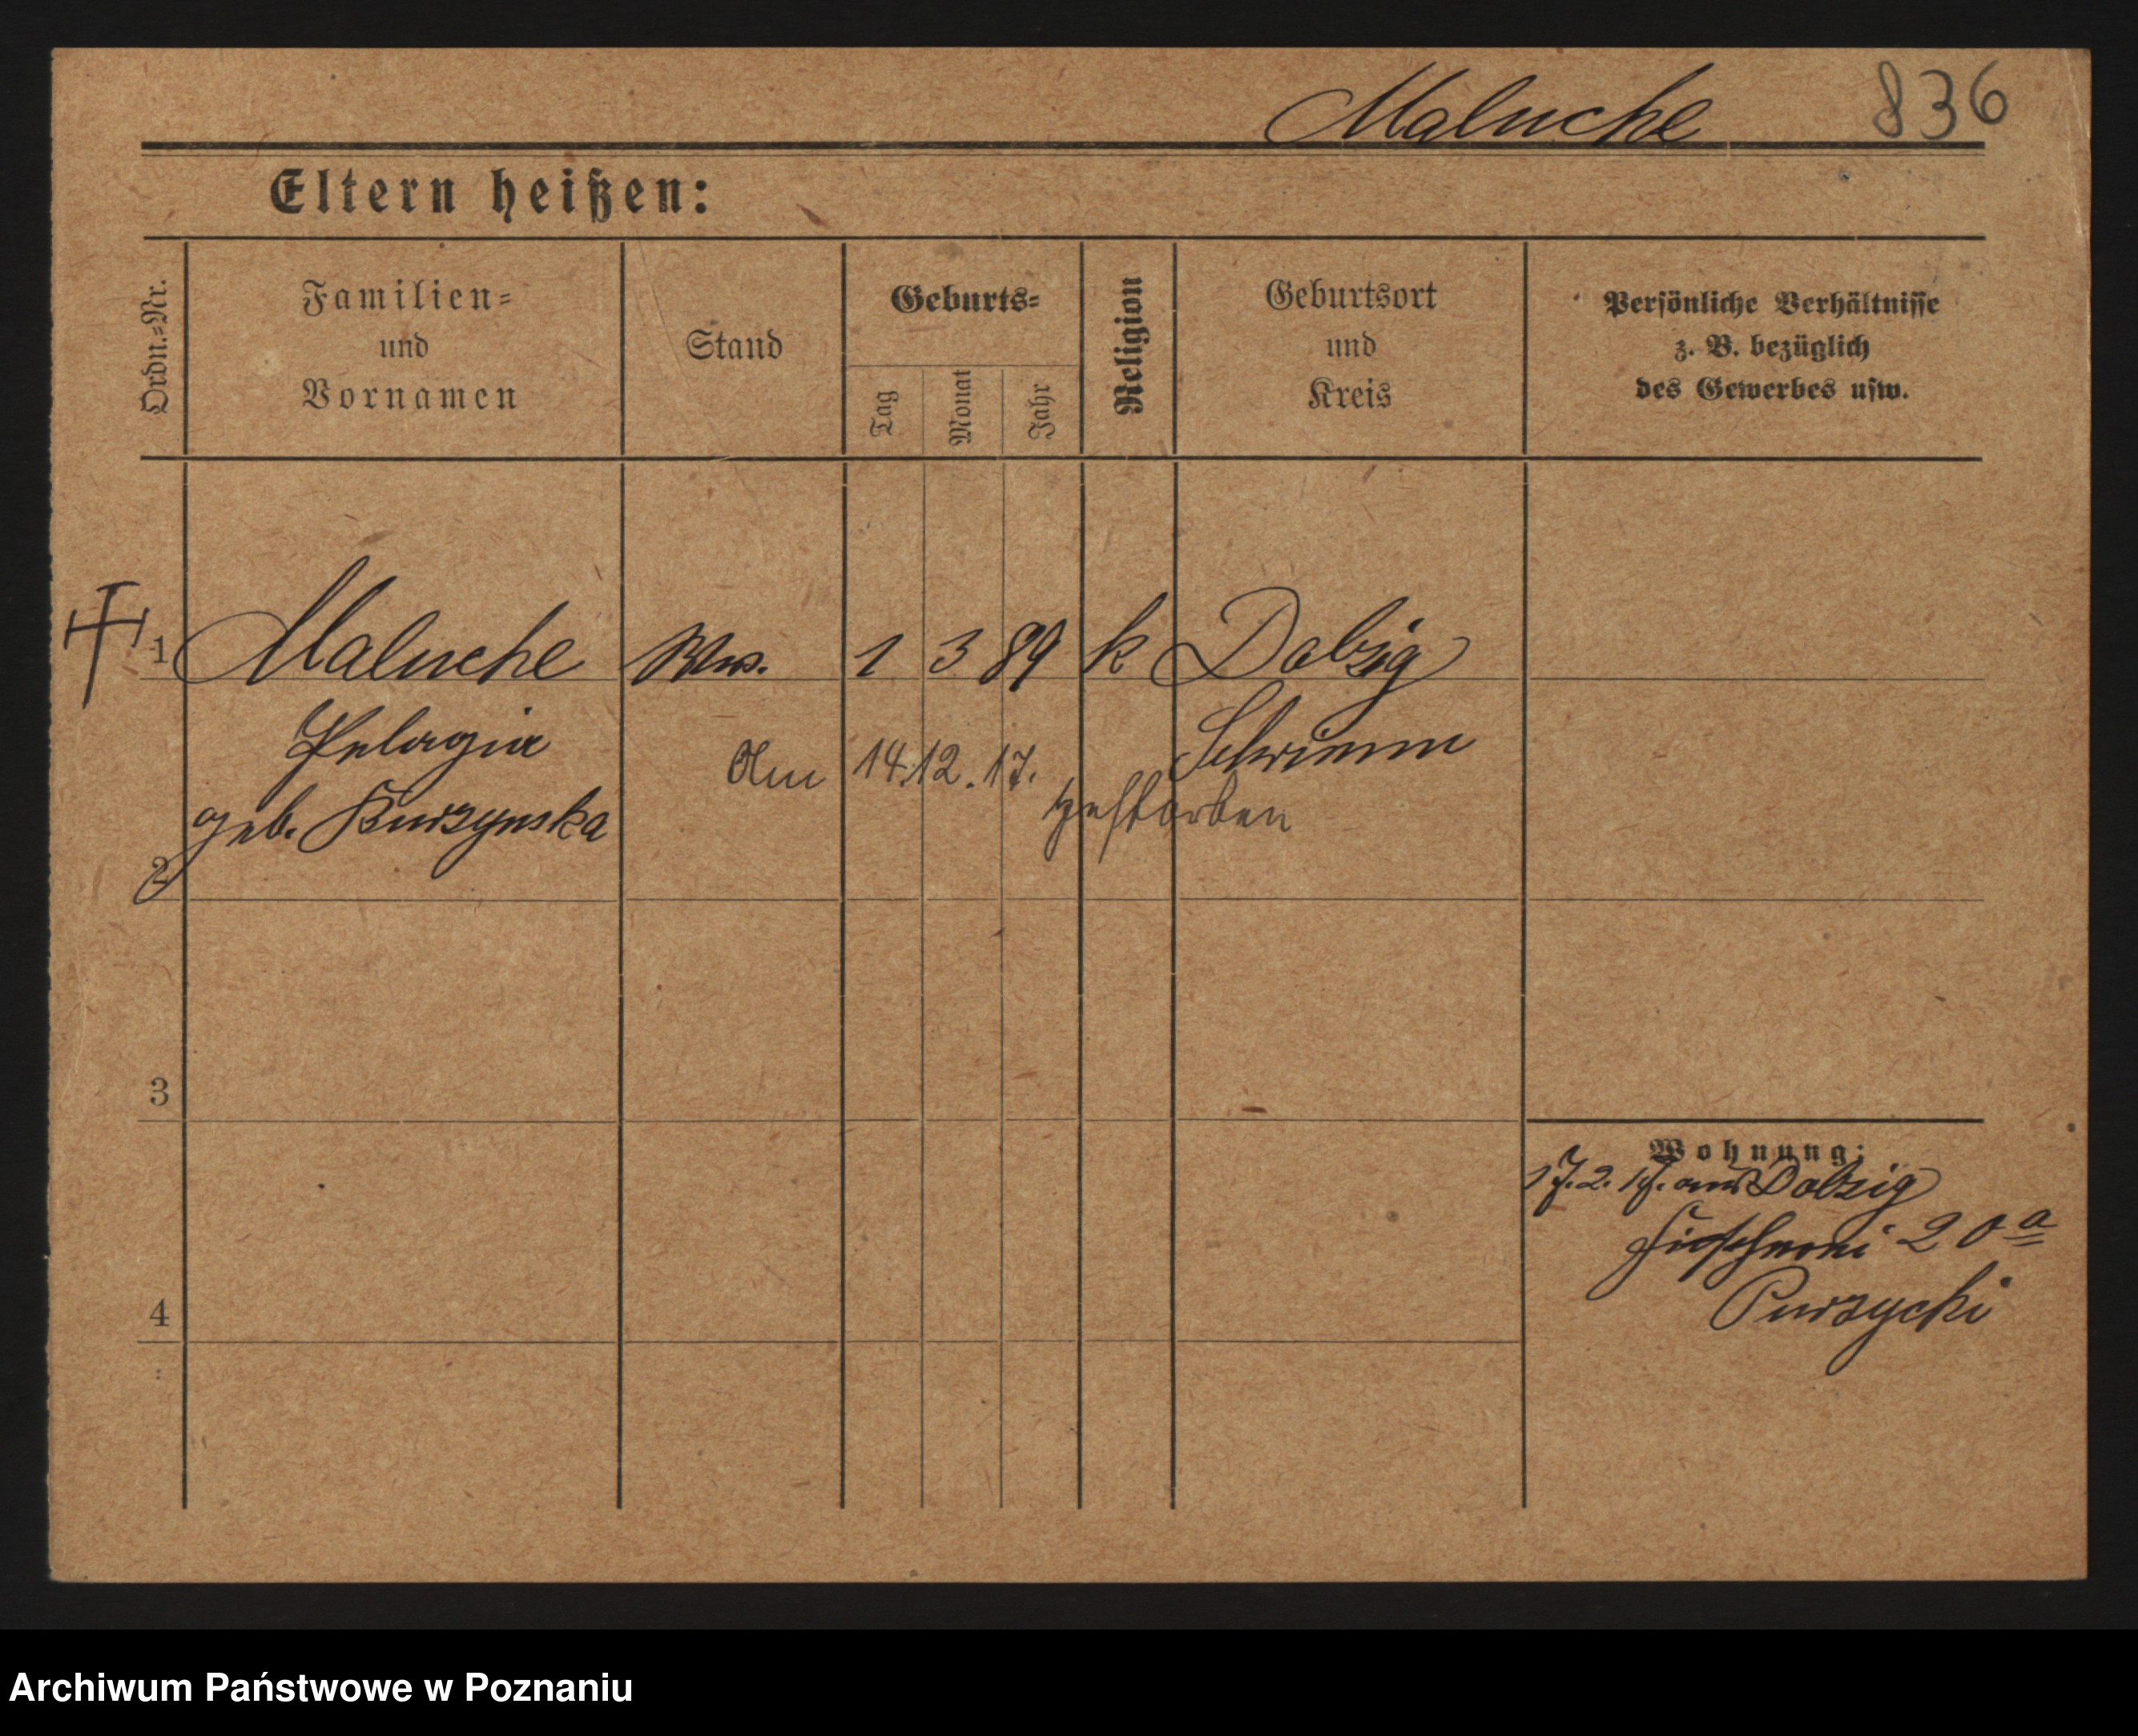 Maluche 836
Eltern heißen:
Ordn.=Nr.
Familien=
und
Vornamen
Stand
Geburts=
Tag
Monat
Jahr
Religion
Geburtsort
und
Kreis
Persönliche Verhältnisse
z. B. bezüglich
des Gewerbes usw.
1 Maluche Ww. 1 3 89 k Dolzig
Pelagia Schrimm
Am 14.12.17.
gestorben
geb. Kurzynska
2
3
4
Wohnung:
17.2.17. aus Dolzig
20a